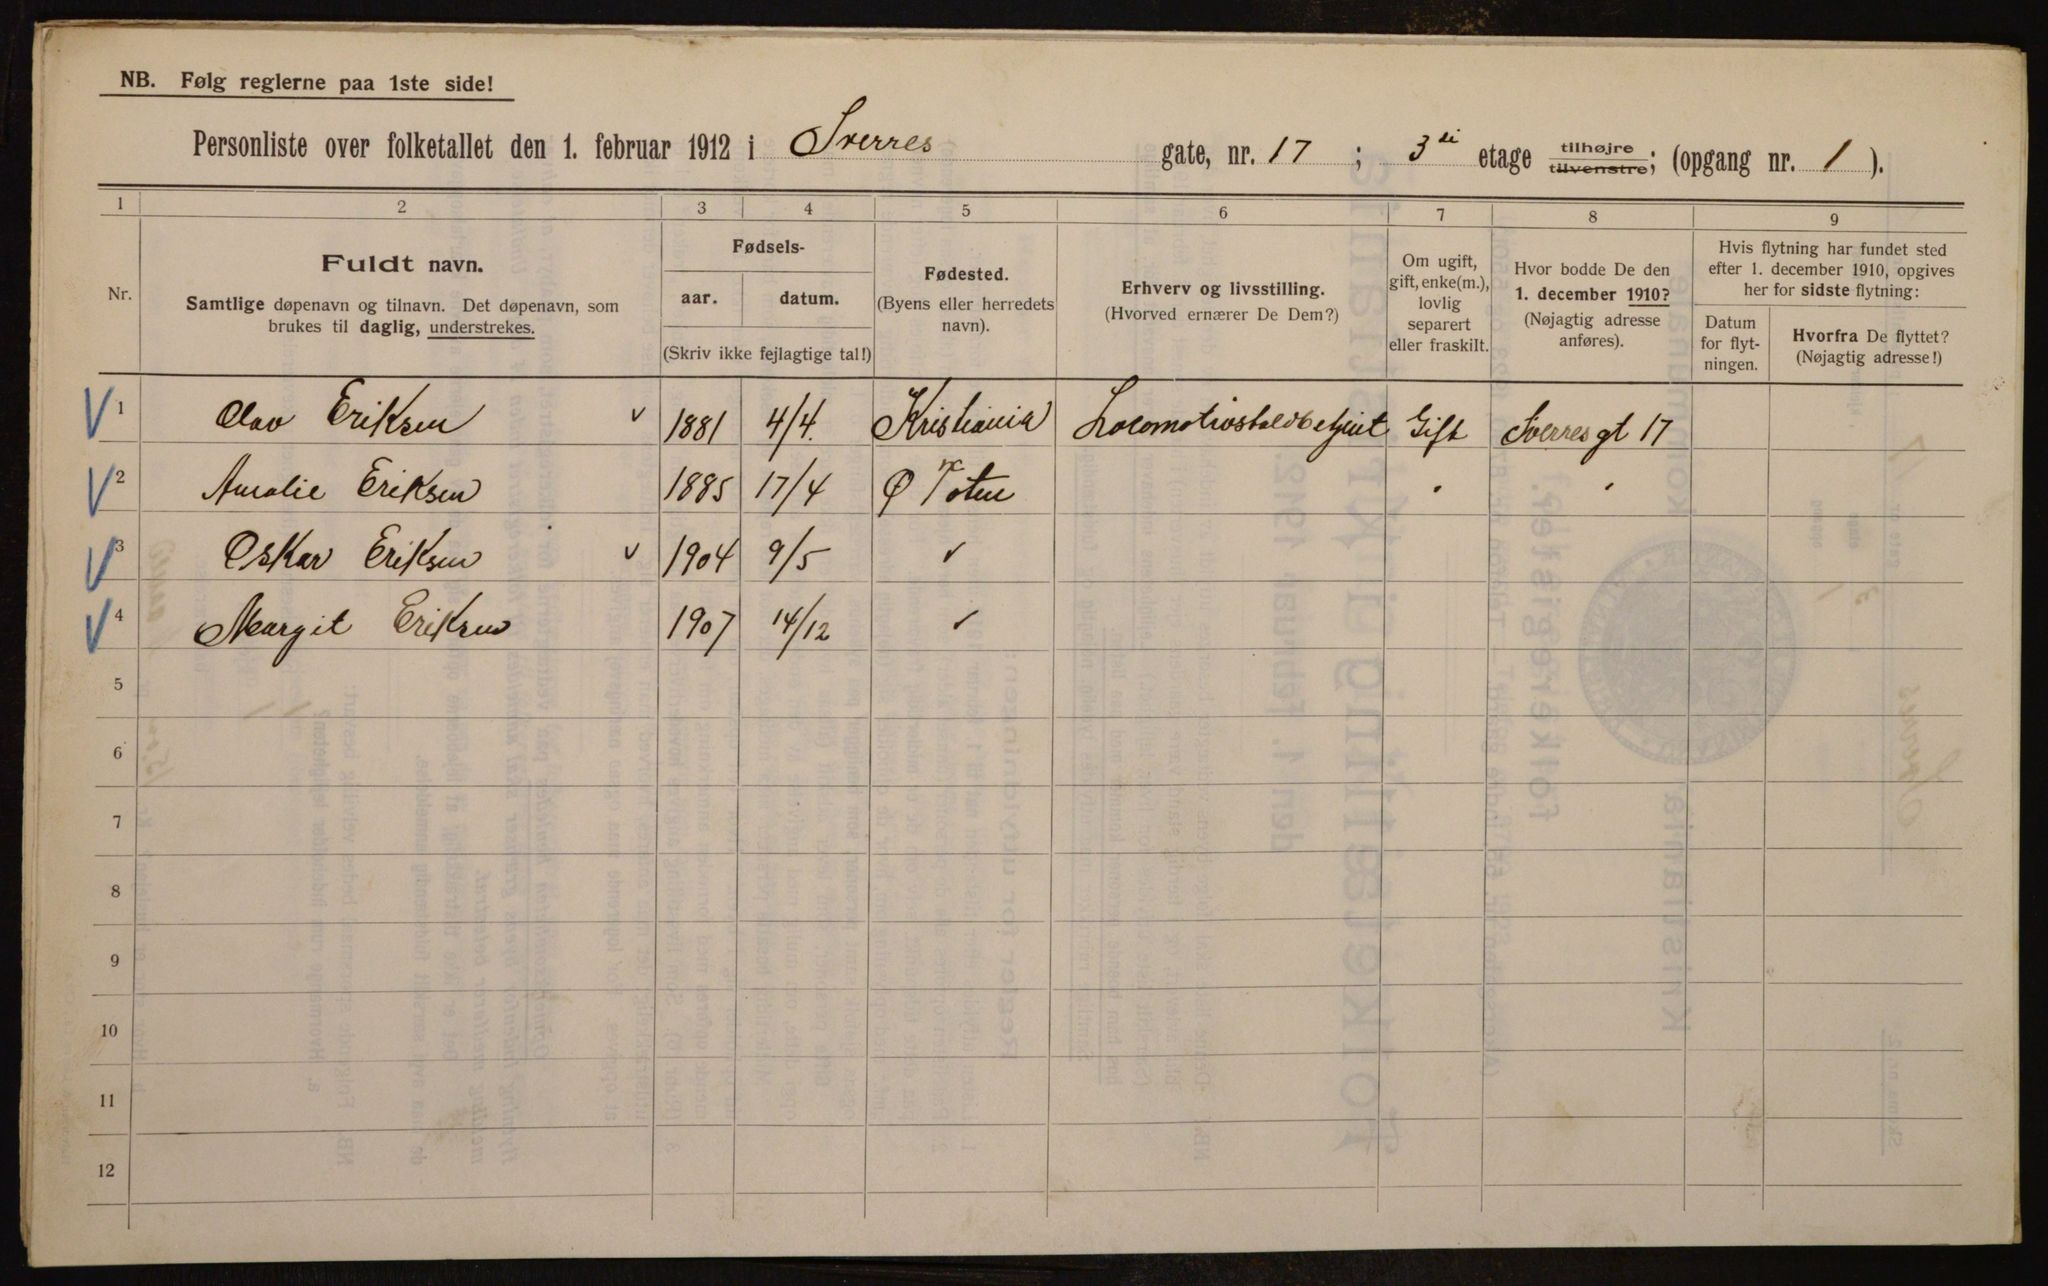 NB. Følg reglerne paa 1ste side!
Personliste over folketallet den 1. februar 1912 i Sverres gate, nr. 17 ; 3di etage tilhøjre tilvenstre; (opgang nr. 1 ).
1 2 3 4 5 6 7 8 9
Nr.
Fuldt navn.
Samtlige døpenavn og tilnavn. Det døpenavn, som
brukes til daglig, understrekes.
Fødsels-
aar. datum.
(Skriv ikke fejlagtige tal!)
Fødested.
(Byens eller herredets
navn).
Erhverv og livsstilling.
(Hvorved ernærer De Dem?)
Om ugift,
gift, enke(m.),
lovlig
separert
eller fraskilt.
Hvor bodde De den
1. december 1910?
(Nøjagtig adresse
anføres).
Hvis flytning har fundet sted
efter 1. december 1910, opgives
her for sidste flytning:
Datum
for flyt-
ningen.
Hvorfra De flyttet?
(Nøjagtig adresse!)
1 Olav Eriksen 1881 4/4. Kristiania Gift Sverres gt 17
2 Amalie Eriksen 1885 17/4 Ø Toten " "
3 Oskar Eriksen 1904 9/5 "
4 Margit Eriksen 1907 14/12 "
5
6
7
8
9
10
11
12